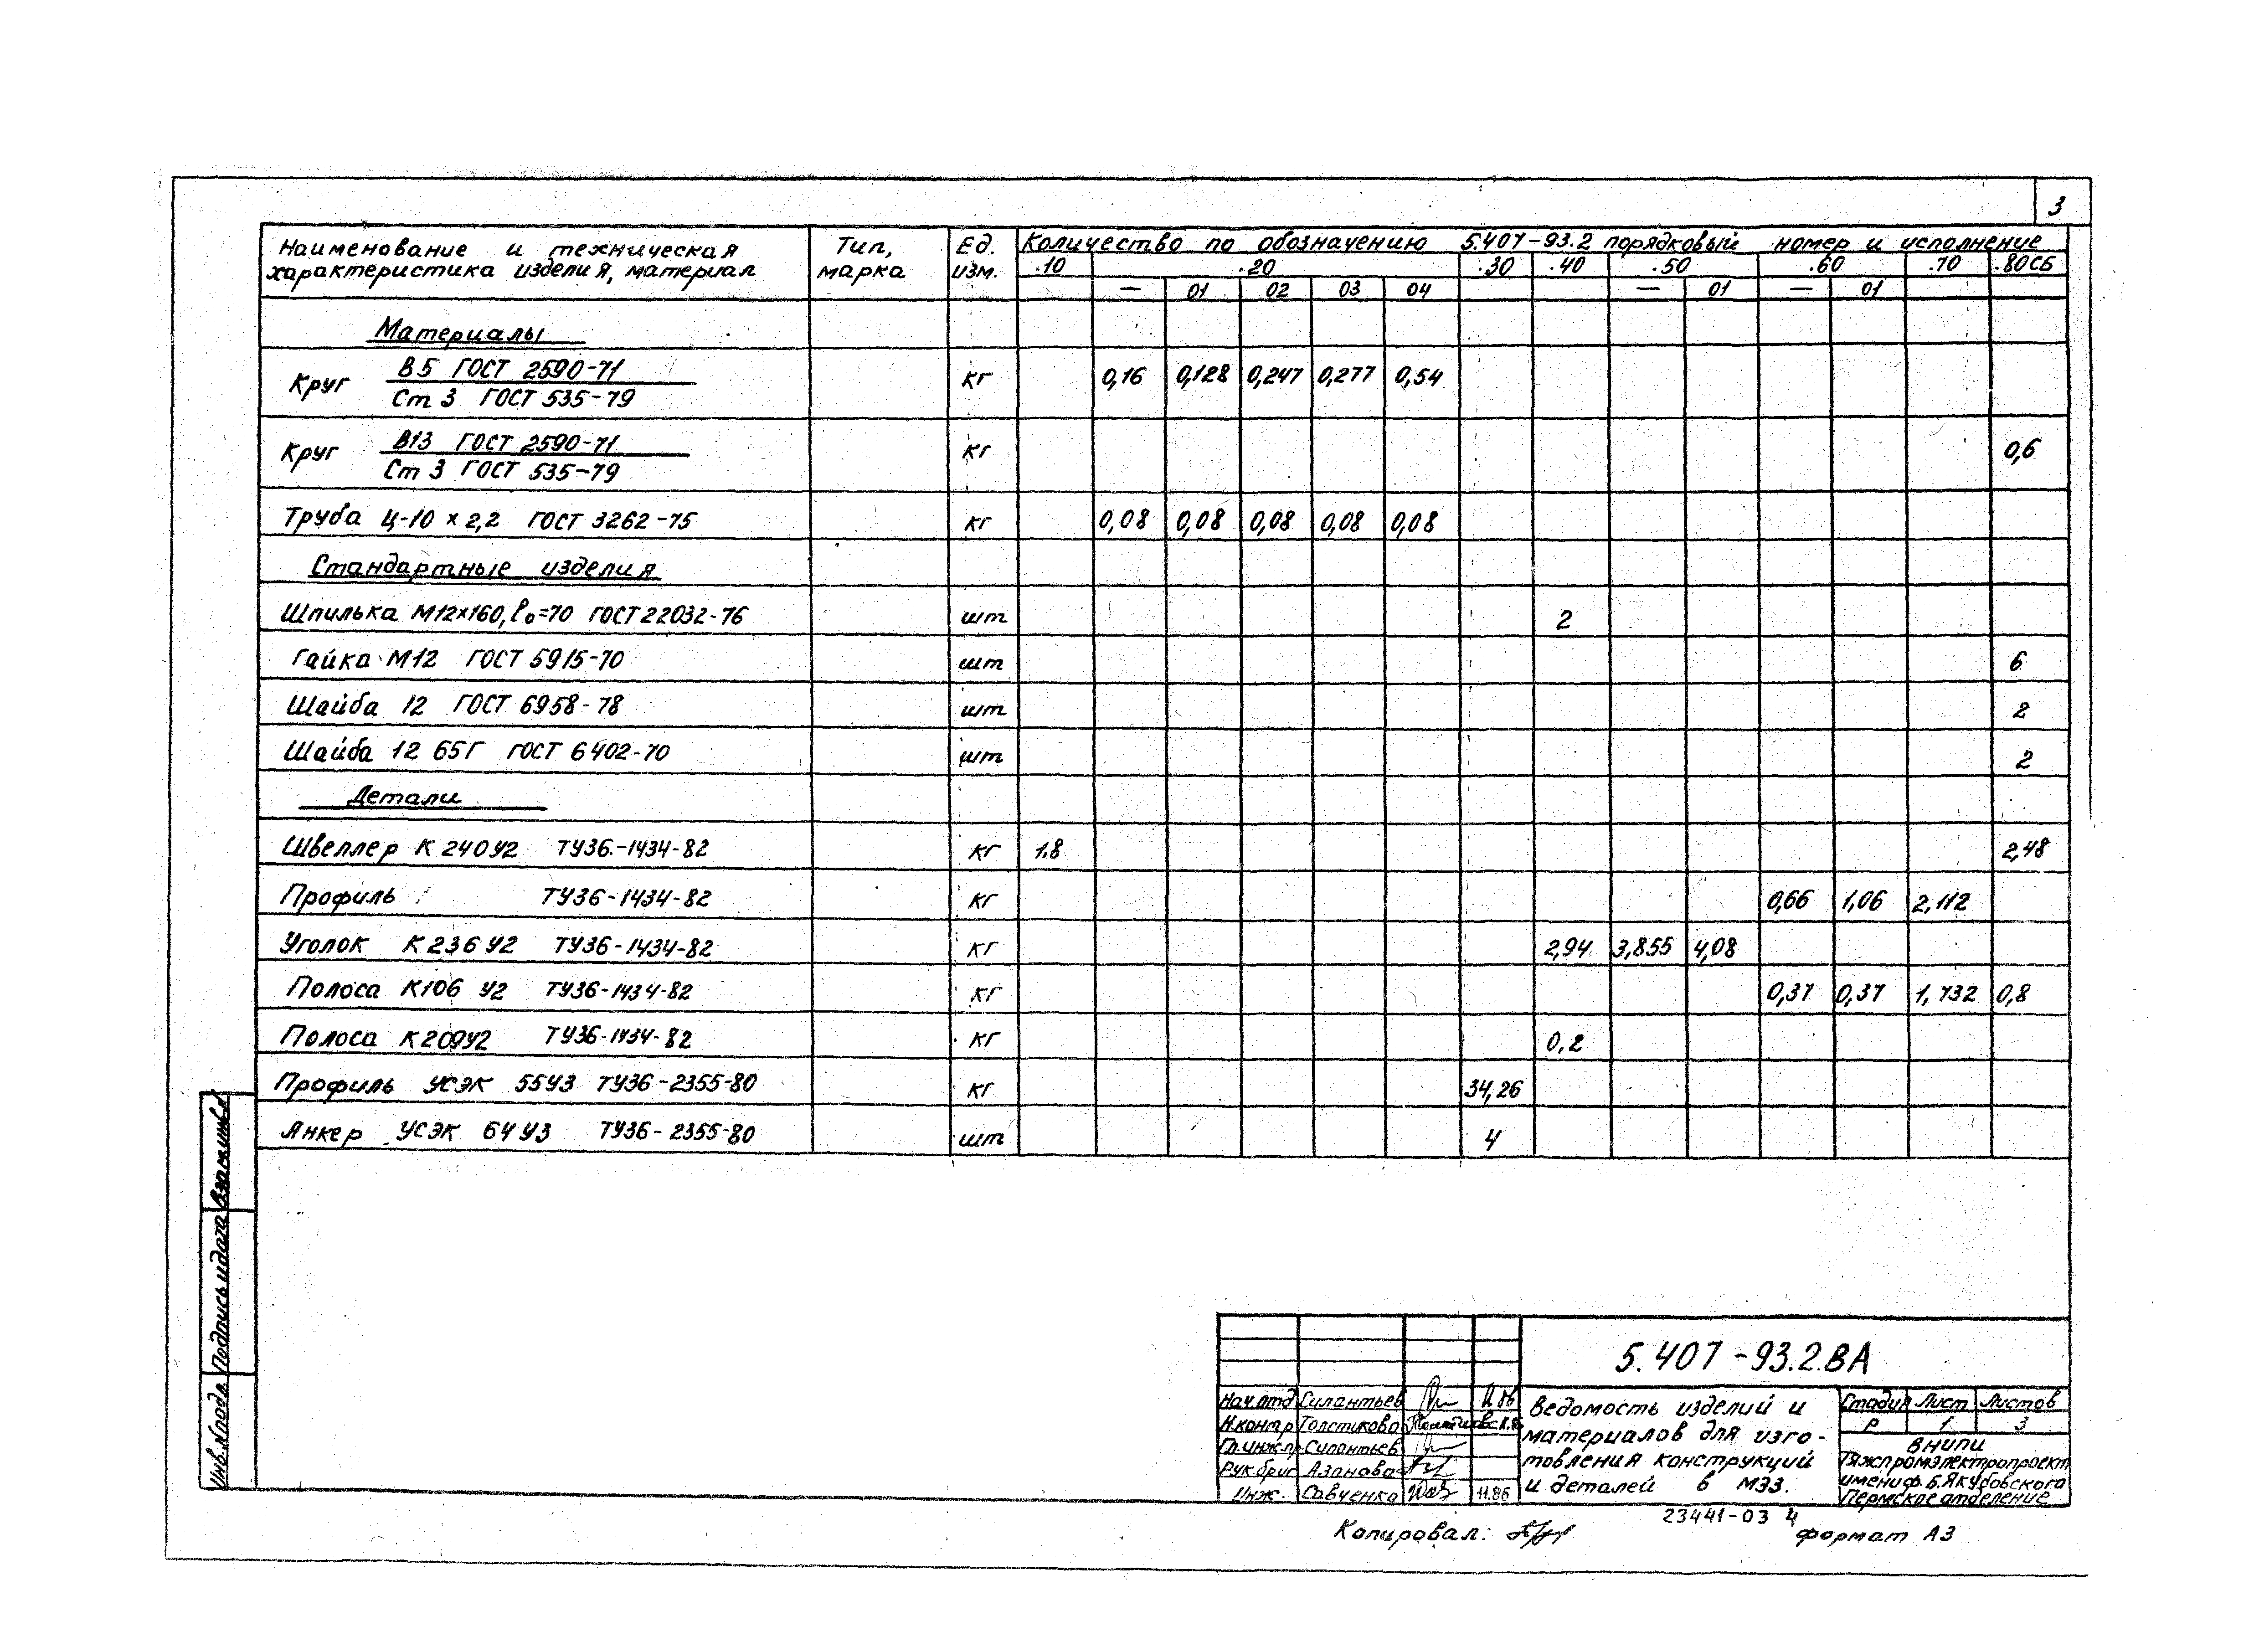 3
Наименование и техническая характеристика изделия, материал
Тип, марка
Ед. изм.
Количество по обозначению 5.407-93.2 порядковый номер и исполнение
.10 .20 .30 .40 .50 .60 .70 .80СБ
— 01 02 03 04 — 01 — 01
Материалы
Круг В5 ГОСТ 2590-71 / Ст 3 ГОСТ 535-79 кг 0,16 0,128 0,247 0,277 0,54
Круг В13 ГОСТ 2590-71 / Ст 3 ГОСТ 535-79 кг 0,6
Труба Ц-10 х 2,2 ГОСТ 3262-75 кг 0,08 0,08 0,08 0,08 0,08
Стандартные изделия
Шпилька М12х160, l₀=70 ГОСТ 22032-76 шт 2
Гайка М12 ГОСТ 5915-70 шт 6
Шайба 12 ГОСТ 6958-78 шт 2
Шайба 12 65Г ГОСТ 6402-70 шт 2
Детали
Швеллер К 240У2 ТУ36-1434-82 кг 1,8 2,48
Профиль ТУ36-1434-82 кг 0,66 1,06 2,112
Уголок К236У2 ТУ36-1434-82 кг 2,94 3,855 4,08
Полоса К106 У2 ТУ36-1434-82 кг 0,37 0,37 1,732 0,8
Полоса К209У2 ТУ36-1434-82 кг 0,2
Профиль УСЭК 55У3 ТУ36-2355-80 кг 34,26
Анкер УСЭК 64У3 ТУ36-2355-80 шт 4
Взам.инв.№
Подпись и дата
Инв.№подл.
5.407-93.2.ВА
Нач.отд Силантьев 11.86
Н.контр Толстикова
Гл.инж.пр Силантьев
Рук.бриг Азанова
Инж. Савченко 11.86
Ведомость изделий и
материалов для изго-
товления конструкций
и деталей в МЭЗ.
Стадия Лист Листов
Р 1 3
ВНИПИ
Тяжпромэлектропроект
имени Ф.Б.Якубовского
Пермское отделение
23441-03 4
Копировал:
Формат А3